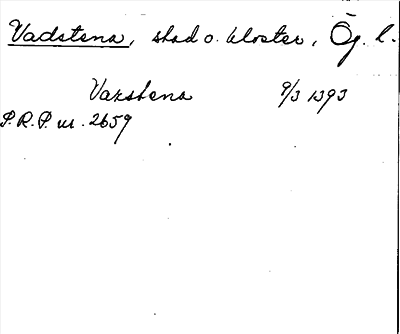 Vadstena, stad o. kloster, Ög. l.
Vazstena 9/3 1393
S.R.P. nr. 2659